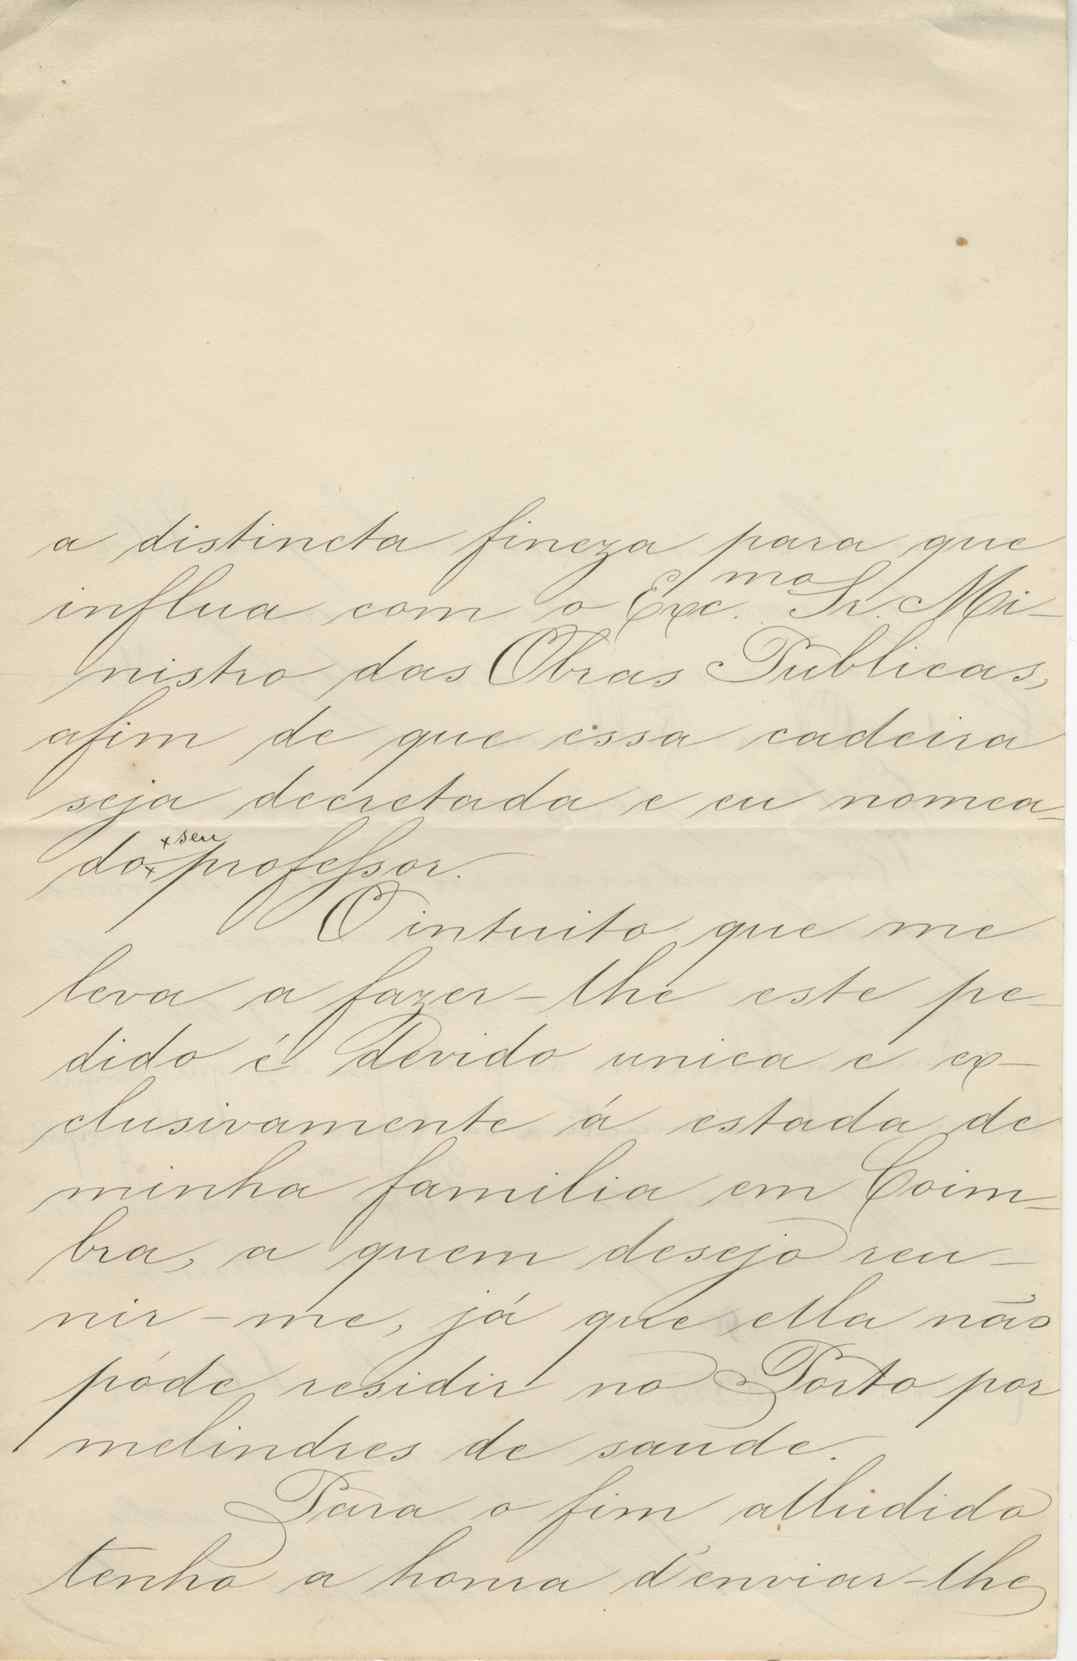 a distincta fineza para que
influa com o Exc.mo Sr. Mi-
nistro das Obras Publicas,
afim de que essa cadeira
seja decretada e eu nomea-
do seu professor.
O intuito que me
leva a fazer-lhe este pe-
dido é devido unica e ex-
clusivamente á estada de
minha familia em Coim-
bra, a quem desejo reu-
nir-me, já que ella não
póde residir no Porto por
melindres de saude.
Para o fim alludido
tenho a honra d'enviar-lhe